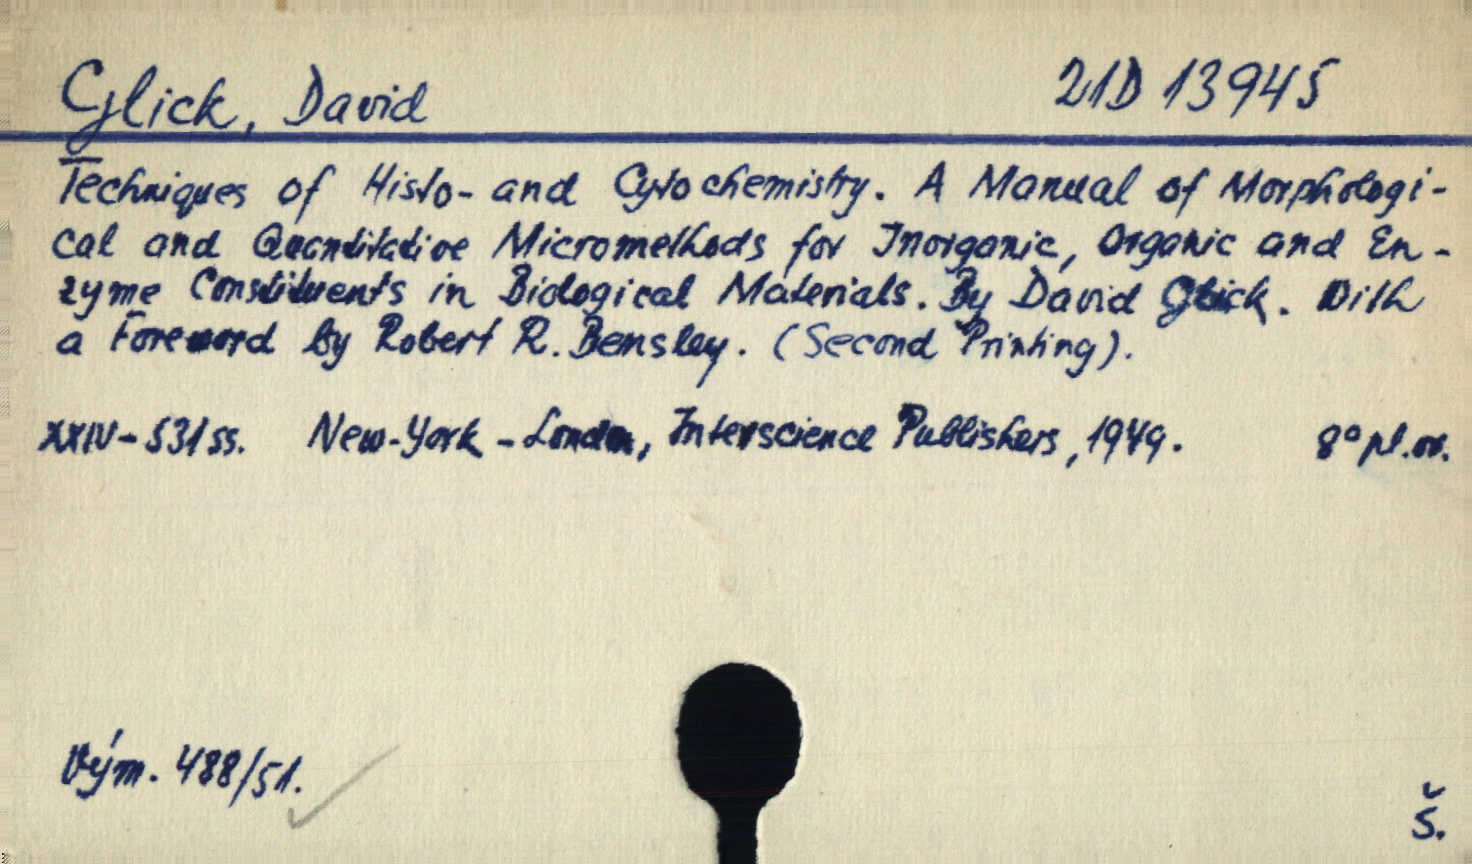 Glick, David 21D 13945
Techniques of Histo- and Cytochemistry. A Manual of Morphologi-
cal and Quantitative Micromethods for Inorganic, Organic and En-
zyme Constituents in Biological Materials. By David Glick. With
a Foreword by Robert R. Bensley. (Second Printing).
XXIV-531 ss. New-York - London, Interscience Publishers, 1949. 8° pl.ov.
Vým. 488/51.
Š.